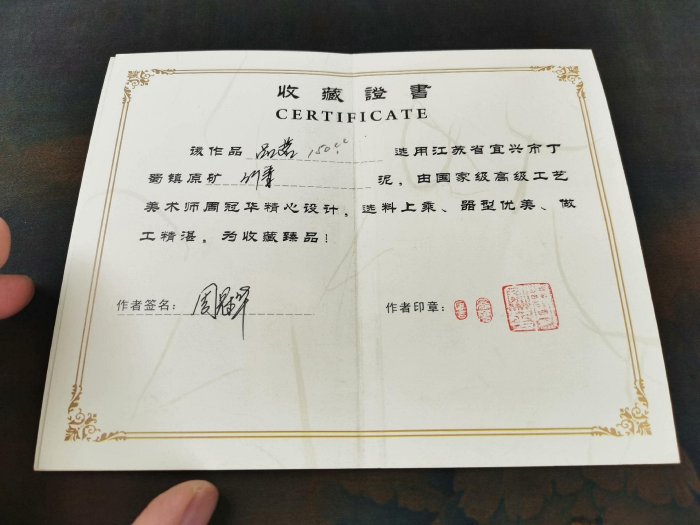 收藏證書
CERTIFICATE
该作品 品茗 150cc 选用江苏省宜兴市丁
蜀镇原矿 泥，由国家级高级工艺
美术师周冠华精心设计，选料上乘、器型优美、做
工精湛，为收藏臻品！
作者签名： 周冠华 作者印章：